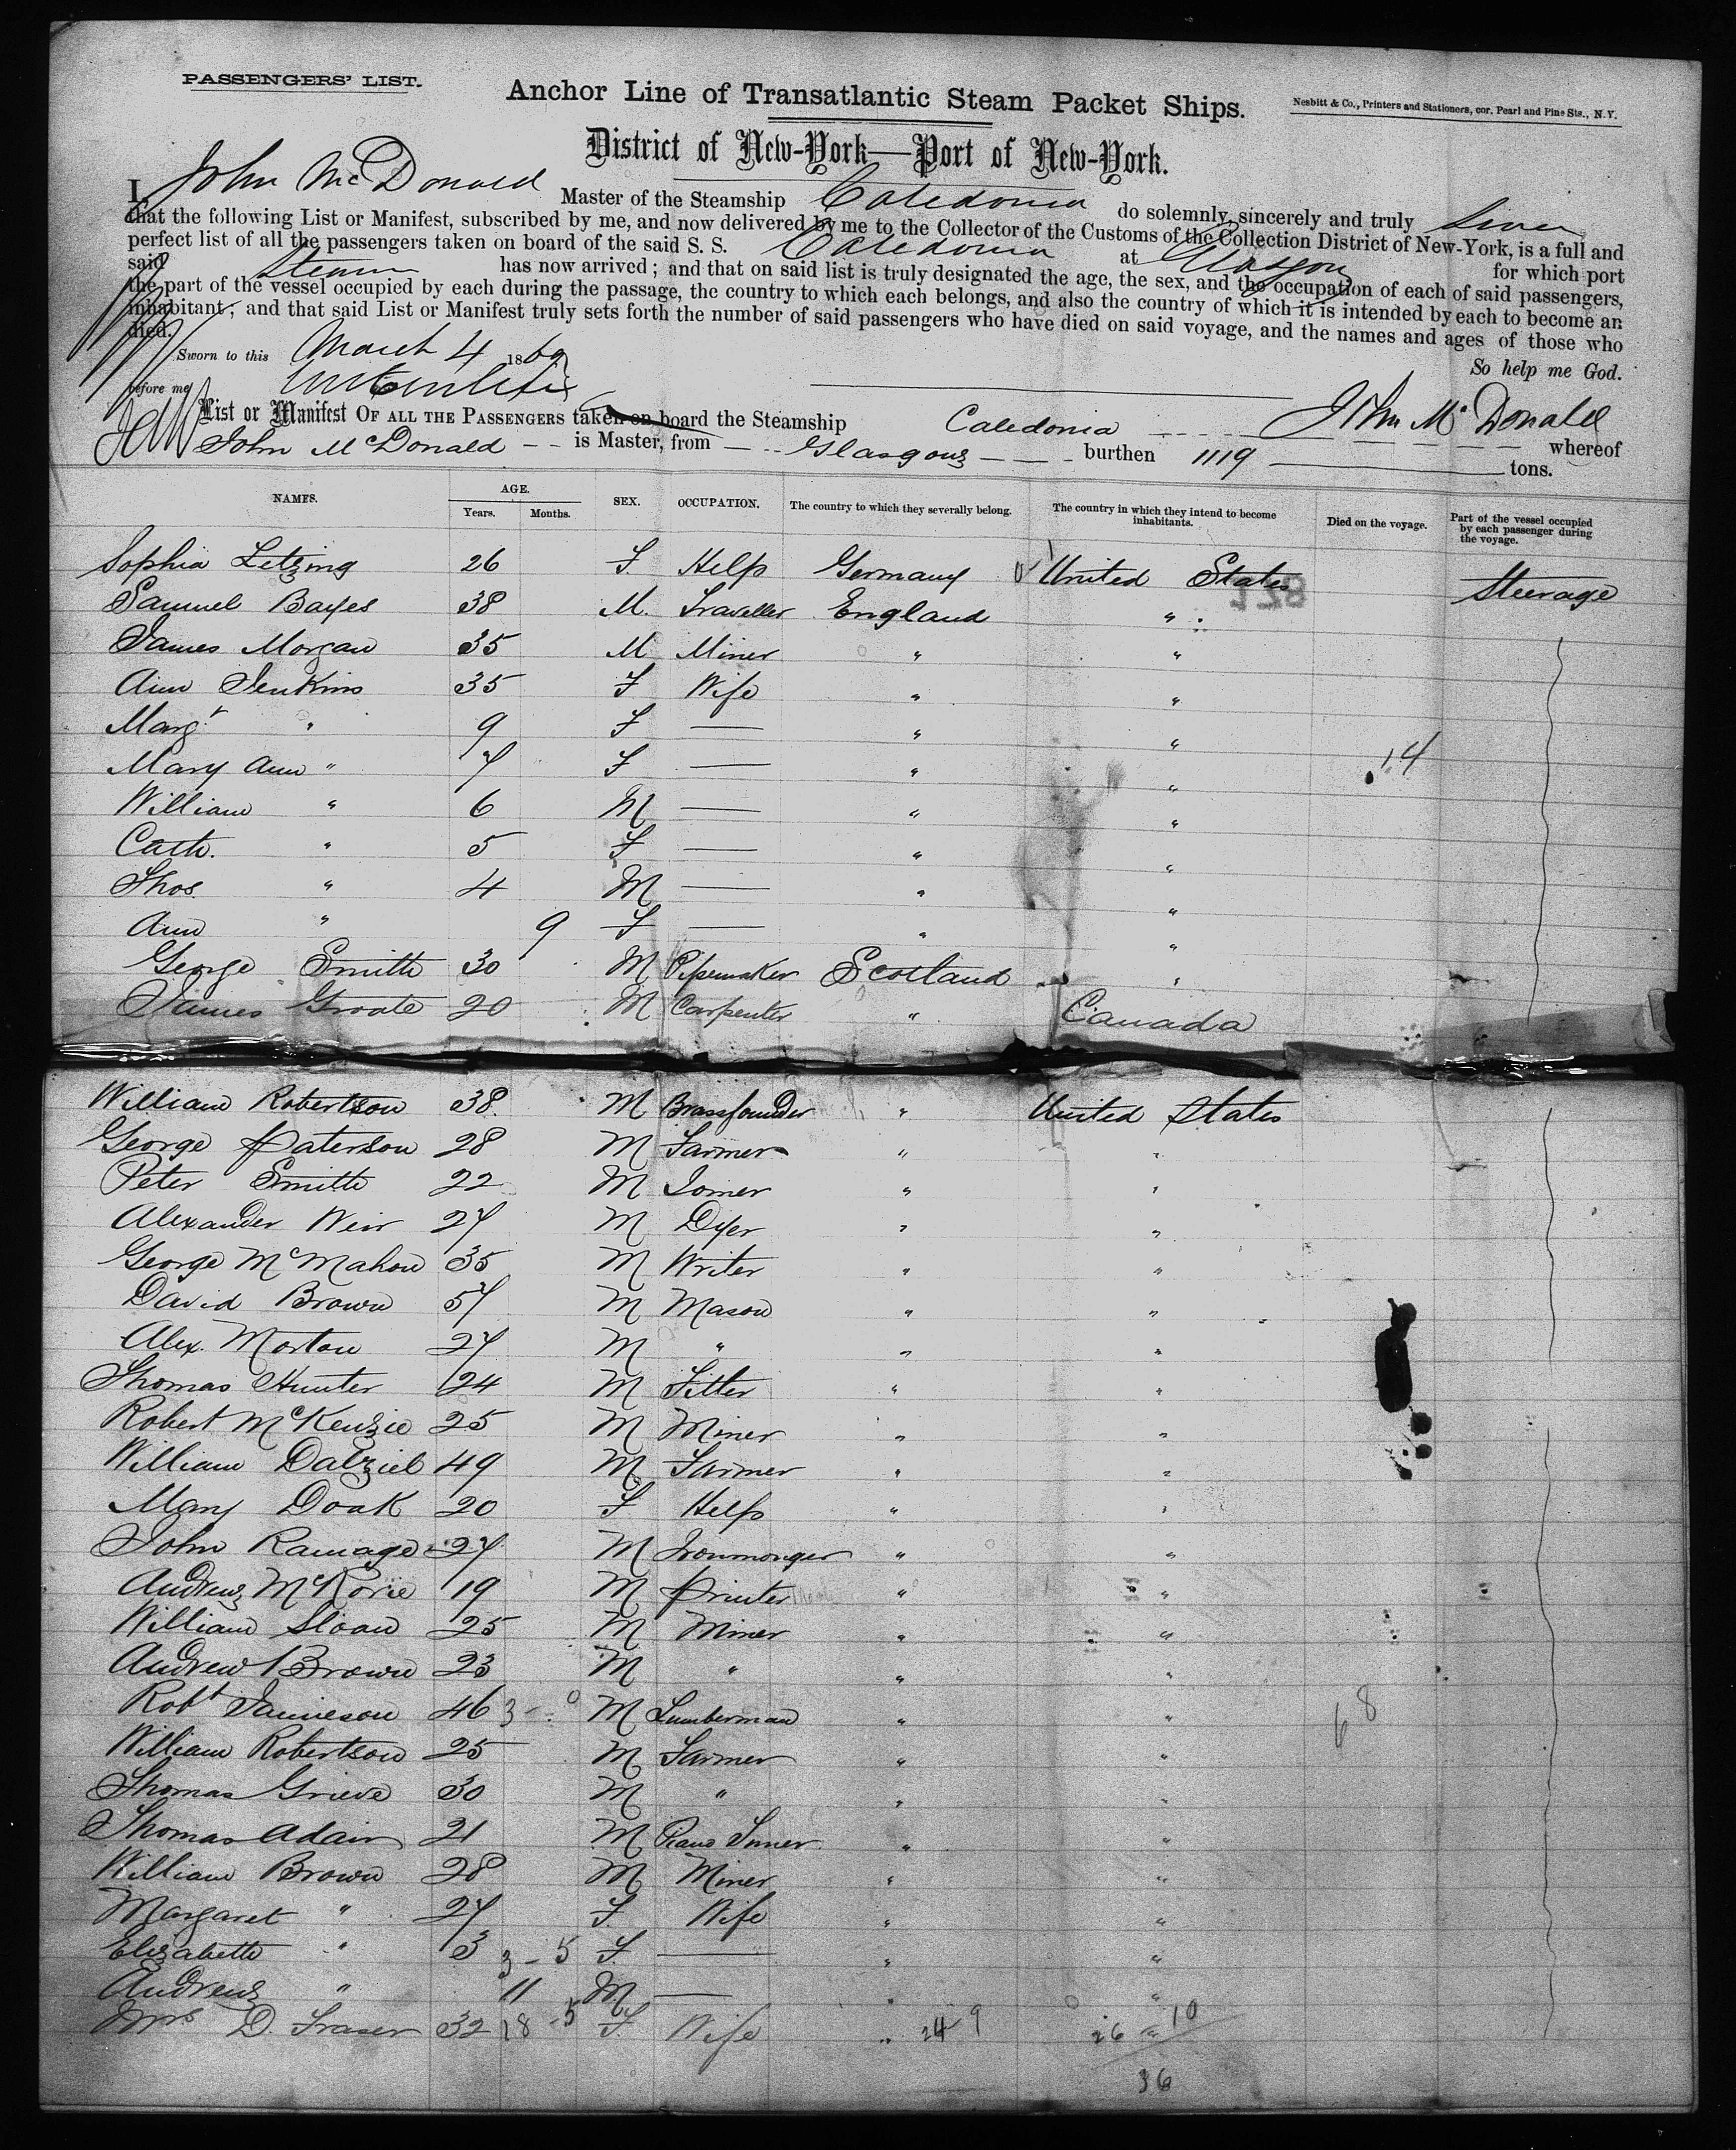 PASSENGERS' LIST.
Anchor Line of Transatlantic Steam Packet Ships.
Nesbitt & Co., Printers and Stationers, cor. Pearl and Pine Sts., N. Y.
District of New-York—Port of New-York.
I, John McDonald Master of the Steamship Caledonia do solemnly, sincerely and truly swear
that the following List or Manifest, subscribed by me, and now delivered by me to the Collector of the Customs of the Collection District of New-York, is a full and
perfect list of all the passengers taken on board of the said S. S. Caledonia at Glasgow for which port
said Steamer has now arrived; and that on said list is truly designated the age, the sex, and the occupation of each of said passengers,
the part of the vessel occupied by each during the passage, the country to which each belongs, and also the country of which it is intended by each to become an
inhabitant; and that said List or Manifest truly sets forth the number of said passengers who have died on said voyage, and the names and ages of those who
died.
So help me God.
Sworn to this March 4 1869
before me
John McDonald
List or Manifest OF ALL THE PASSENGERS taken on board the Steamship Caledonia whereof
John McDonald is Master, from Glasgow burthen 1119 tons.
NAMES. AGE. Years. Months. SEX. OCCUPATION. The country to which they severally belong. The country in which they intend to become inhabitants. Died on the voyage. Part of the vessel occupied by each passenger during the voyage.
Sophia Letzing 26 F. Help Germany United States Steerage
Samuel Bayes 38 M. Traveller England "
James Morgan 35 M Miner " "
Ann Jenkins 35 F Wife " "
Margt " 9 F — " "
Mary Ann " 7 F — " " 14
William " 6 M — " "
Cath. " 5 F — " "
Thos. " 4 M — " "
Ann " 9 F — " "
George Smith 30 M Pipemaker Scotland "
James Groate 20 M Carpenter " Canada
William Robertson 38 M Brassfounder " United States
George Paterson 28 M Farmer " "
Peter Smith 22 M Joiner " "
Alexander Weir 27 M Dyer " "
George McMahon 35 M Writer " "
David Brown 57 M Mason " "
Alex. Morton 27 M " " "
Thomas Hunter 24 M Fitter " "
Robert McKenzie 25 M Miner " "
William Dalziel 49 M Farmer " "
Mary Doak 20 F Help " "
John Ramage 27 M Ironmonger " "
Andrew McRorie 19 M Printer " "
William Sloan 25 M Miner " "
Andrew Brown 23 M " " "
Robt Jamieson 46 3 - 0 M Lumberman " " 68
William Robertson 25 M Farmer " "
Thomas Grieve 30 M " " "
Thomas Adair 21 M Piano Tuner " "
William Brown 28 M Miner " "
Margaret " 27 F. Wife " "
Elizabeth " 3 3 - 5 F. — " "
Andrew " 11 M — " "
Mrs D. Fraser 32 18 - 5 F. Wife " 24 9 26 " 10
36